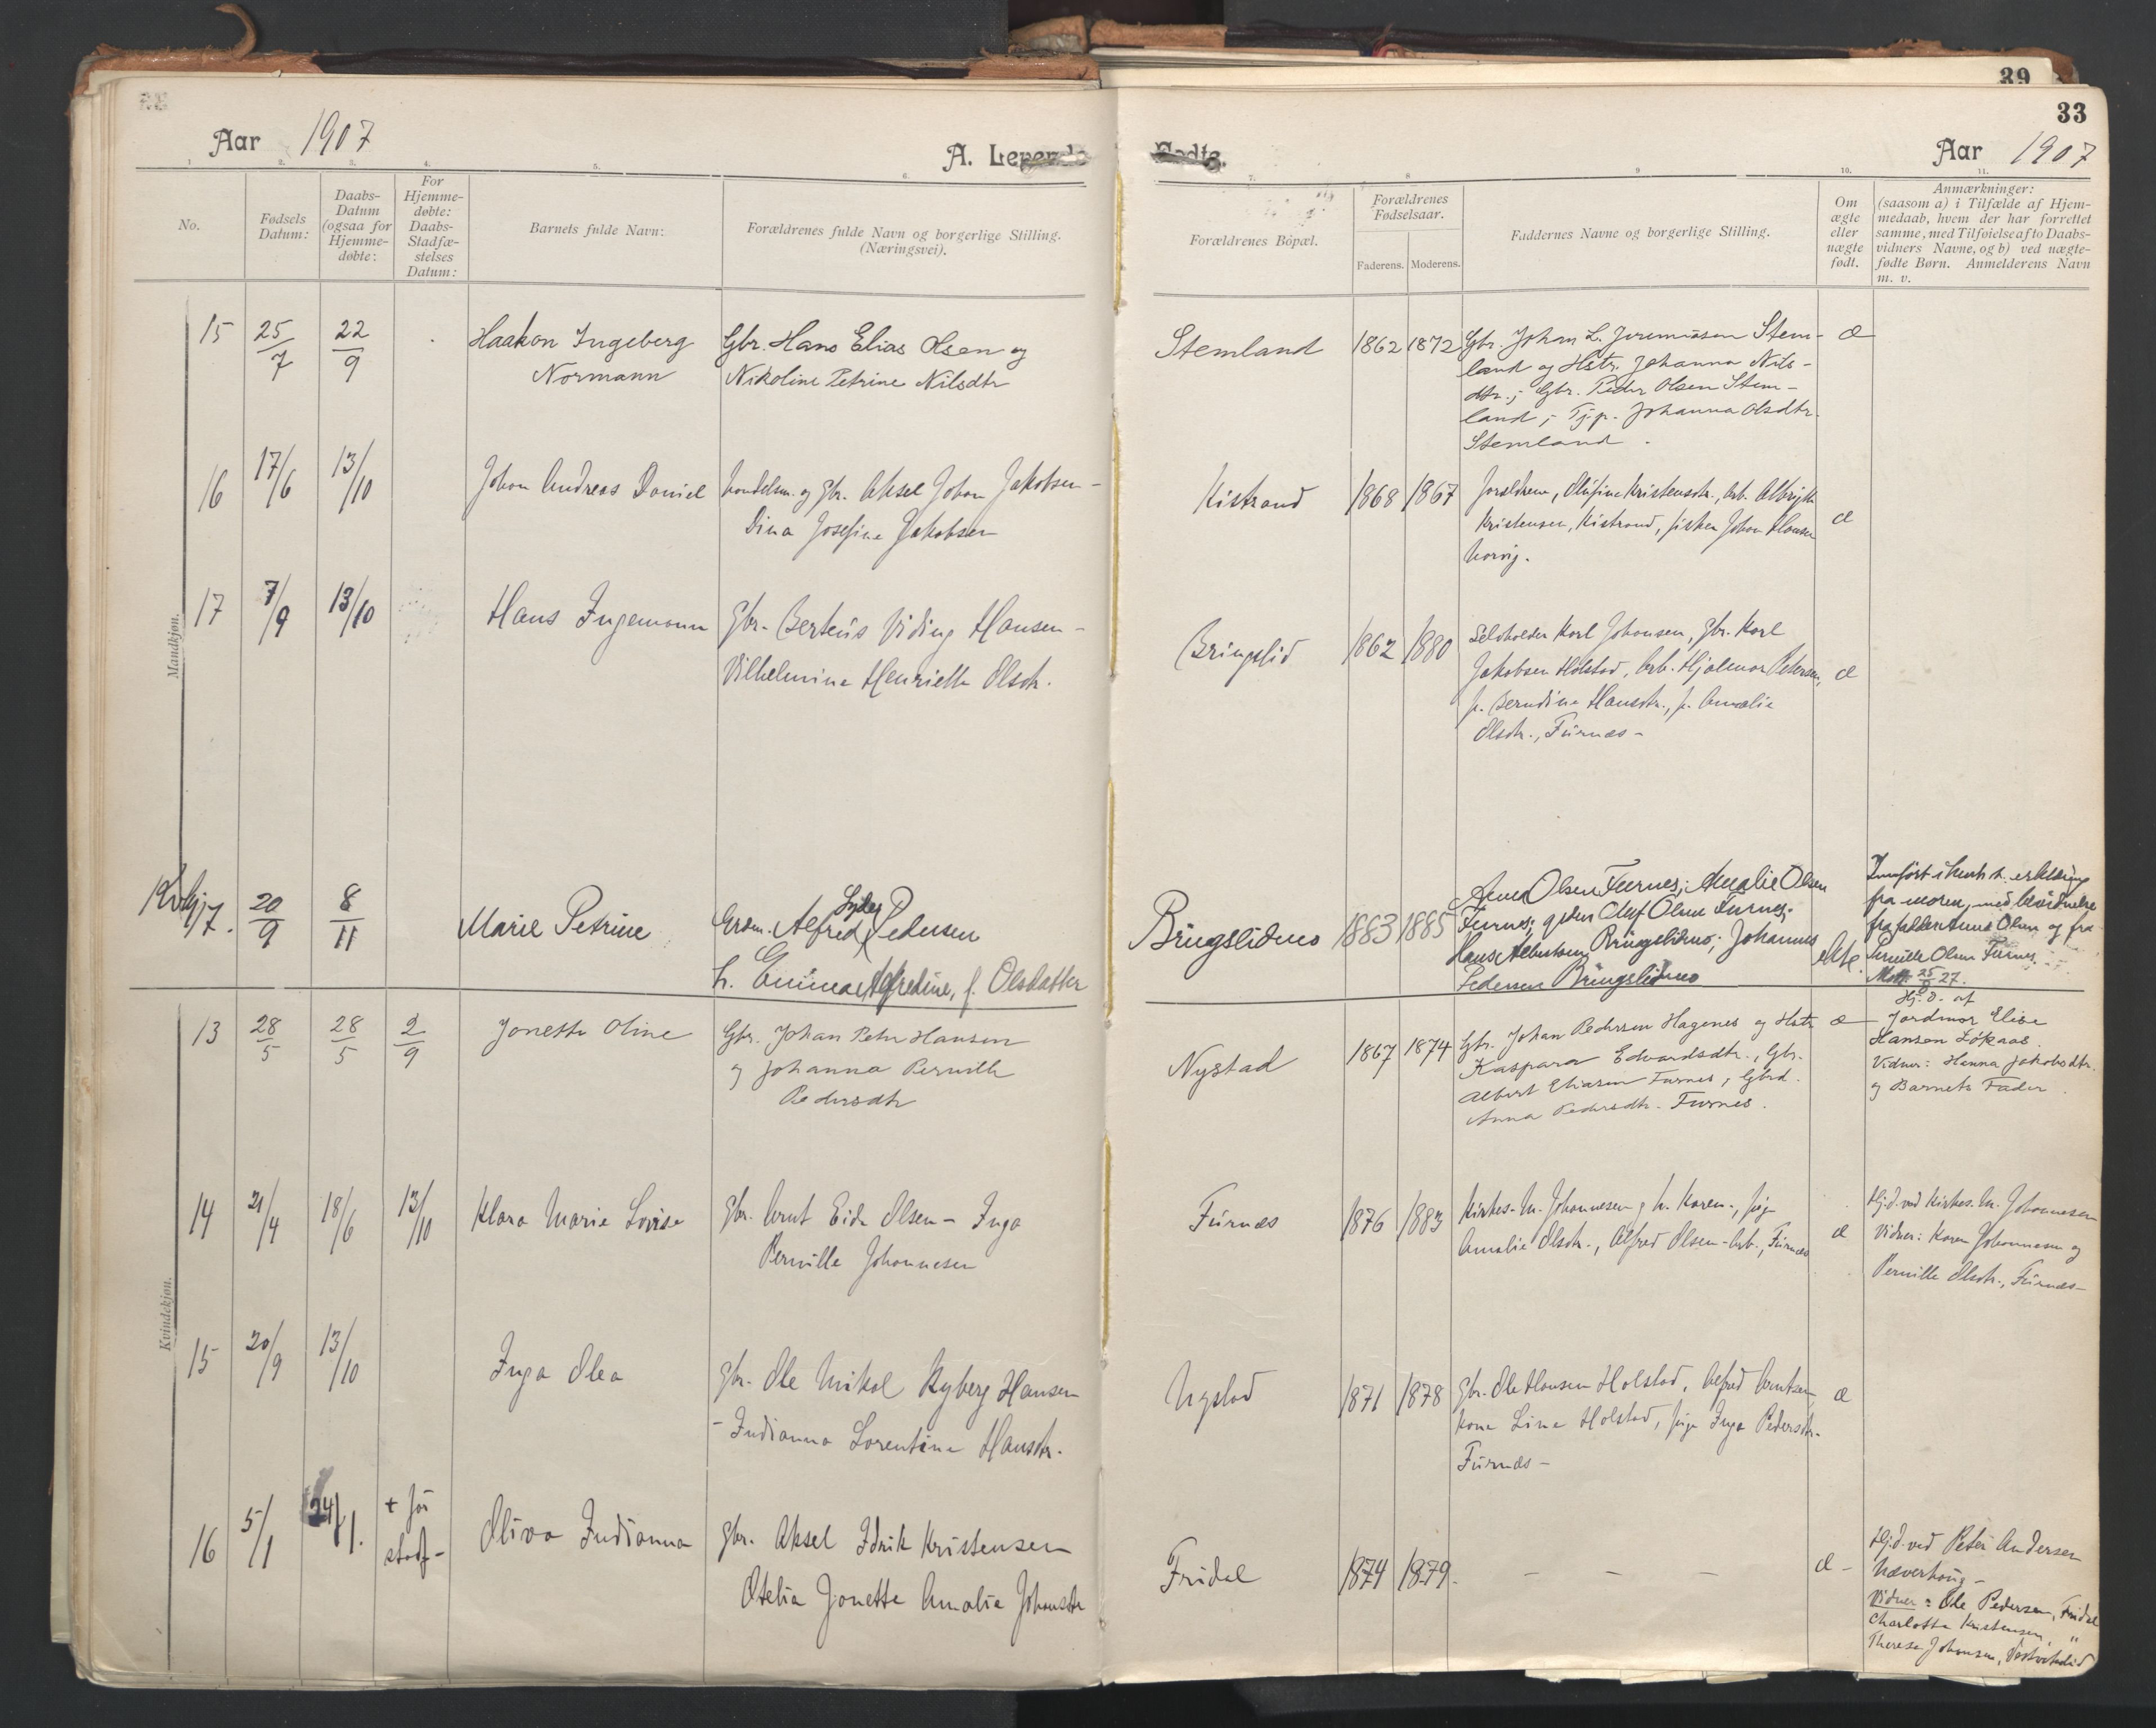 39
33
Aar 1907
A. Levende
Fødte.
Aar 1907
1. 2. 3. 4. 5. 6. 7. 8 9 10. 11.
No.
Fødsels Datum:
Daabs-Datum (ogsaa for Hjemme-døbte:
For Hjemme-døbte: Daabs-Stadfæ-stelses Datum:
Barnets fulde Navn:
Forældrenes fulde Navn og borgerlige Stilling. (Næringsvei).
Forældrenes Böpæl.
Forældrenes Fødselsaar.
Faderens. Moderens.
Faddernes Navne og borgerlige Stilling.
Om ægte eller uægte født.
Anmærkninger:
(saasom a) i Tilfælde af Hjem-
medaab, hvem der har forrettet
samme, med Tilføielse af to Daabs-
vidners Navne, og b) ved uægte-
fødte Børn. Anmelderens Navn
m. v.
Mandkjøn.
15 25/7 22/9 Haakon Ingeberg
Normann
Gbr. Hans Elias Olsen og
Nikoline Petrine Nilsdtr
Stemland 1862 1872
Gbr. Johan L. Jeremiasen Stem-
land og Hstr. Johanna Nils-
dtr.; Gbr. Peder Olsen Stem-
land; Tj.p. Johanna Olsdtr.
Stemland.
æ
16 17/6 13/10 Johan Andreas Daniel
Handelsm. og Gbr. Aksel Johan Jakobsen -
Dina Josefine Jakobsen
Kistrand 1868 1867
Forældrene, Olufine Kristensdtr., Arb. Albrigt
Kristensen, Kistrand, fisker Johan Hansen
Norvig.
æ
17 7/9 13/10 Hans Ingemann
Gbr. Berteus Viding Hansen -
Vilhelmine Henriette Olsdtr.
Bringslid 1862 1880
Selvholder Karl Johansen, Gbr. Karl
Jakobsen Holstad, Arb. Hjalmar Petersen,
p. Berndine Hansdtr., p. Amalie
Olsdtr., Furnæs -
æ
Kvkj
17. 20/9 8/11 Marie Petrine
Grdm. Alfred Lyder Pedersen
h. Emma Alfredine, f. Olsdatter
Bringslidmo 1883 1885
Anna Olsen Furnes; Amalie Olsen
Furnes; Oluf Olsen Furnes;
Hans Albertsen Bringslidmo; Johannes
Pedersen Bringslidmo
ekte.
Innført i henh. t. erklæring
fra moren, med bevidnelse
fra fadder Anna Olsen og fra
Pernille Olsen Furnes.
25/8 27.
Kvindekjøn.
13 28/5 28/5 2/9 Jonette Oline
Gbr. Johan Peter Hansen
og Johanna Pernille
Pedersdtr
Nystad 1867 1874
Gbr. Johan Pedersen Hagenes og Hstr
Kaspara Edvardsdtr., Gbr.
Albert Eliasen Furnes, Gbrd.
Anna Pedersdtr. Furnes.
æ
Hj. d. af
Jordmor Elise
Hanson Løkaas.
Vidner: Hanna Jakobsdtr.
og Barnets Fader
14 21/4 18/6 13/10 Klara Marie Lovise
Gbr. Arnt Eide Olsen - Inga
Pernille Johannesen
Furnæs 1876 1883
Kirkes. M. Johannesen og h. Karen., pige
Amalie Olsdtr., Alfred Olsen - Arb., Furnæs
æ
Hj.d. ved Kirkes. M. Johannesen
Vidner: Karen Johannesen og
Pernille Olsdtr., Furnæs -
15 20/9 13/10 Inga Olea
Gbr. Ole Mikal Ryberg Hansen
- Indianna Lorentine Hansdtr.
Nystad 1871 1878
Gbr. Ole Hansen Holstad, Alfred Arntsen,
Kone Lina Holstad, pige Inga Pedersdtr.
Furnæs -
æ
16 5/1 24/1. + før
stadf -
Oliva Indianna
Gbr. Aksel Idrik Kristensen
Otelia Jonette Amalie Johansdtr
Fridal 1874 1879. - - -
æ -
Hj.d. ved Peter Andersen
Næverhoug -
Vidner: Ole Pedersen, Fridal
Charlotta Kristensen, "
Therese Johansen,